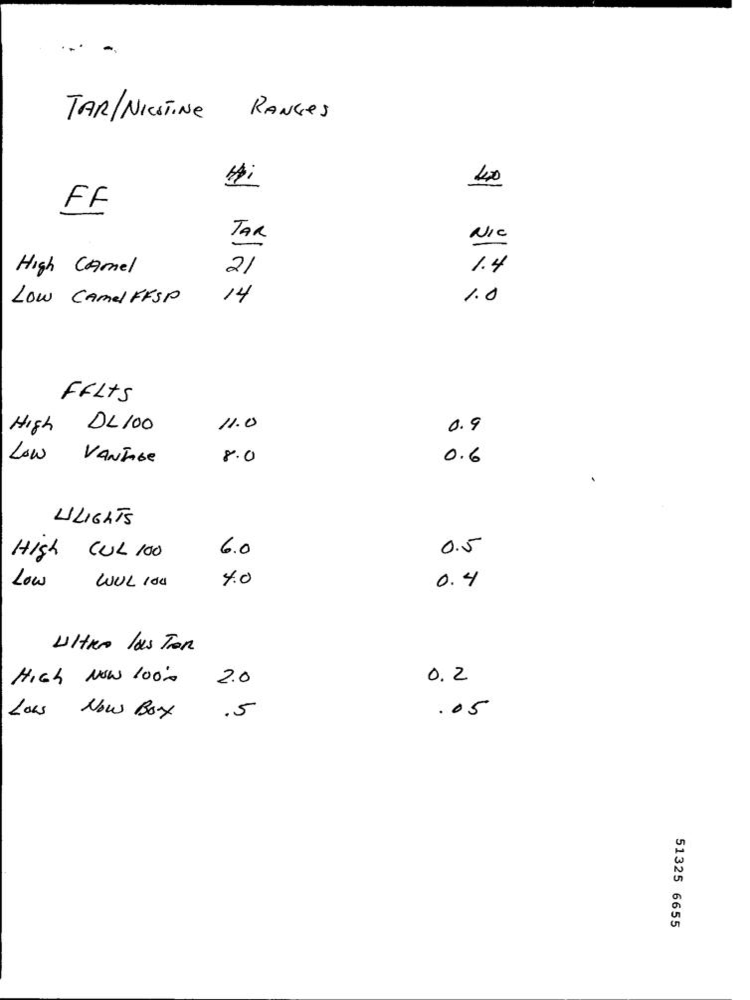 TAR/NICOTINE RANGES
Hi Lo
FF
TAR NIC
High CAmel 21 1.4
Low CAmel FFSP 14 1.0
FFLTS
High DL100 11.0 0.9
Low VANTAGE 8.0 0.6
ULIGHTS
High CUL 100 6.0 0.5
Low WUL 100 4.0 0.4
Ultra low Tar
High Now 100's 2.0 0.2
Low Now Box .5 .05
51325 6655